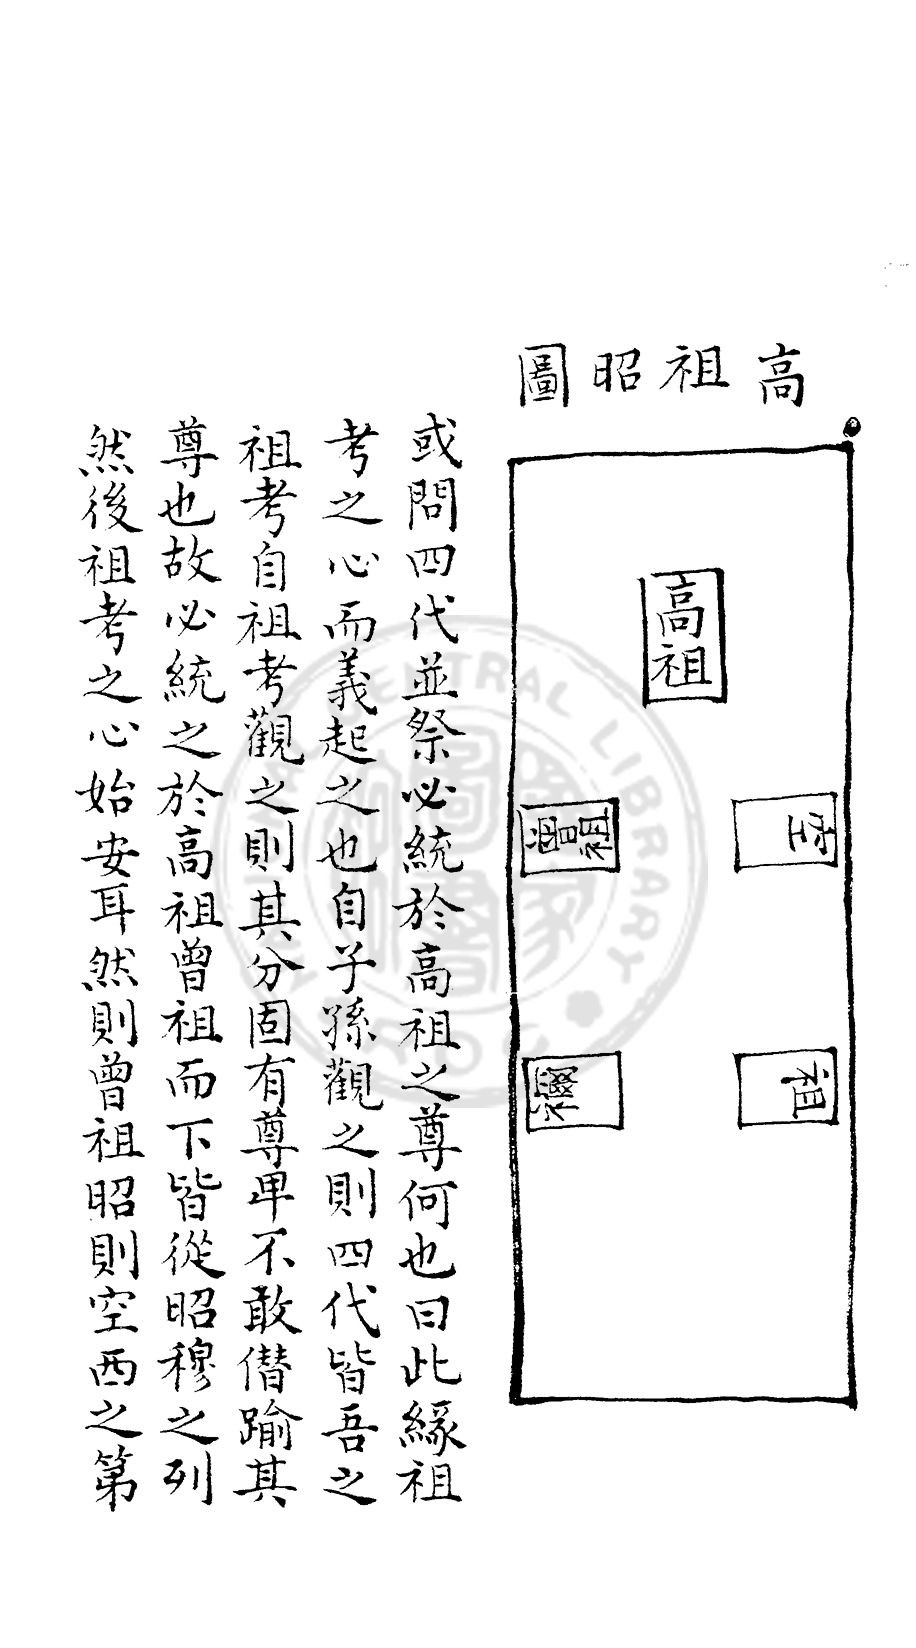 高祖昭圖
高祖
空
曾祖
祖
禰
或問四代並祭必統於高祖之尊何也曰此緣祖
考之心而義起之也自子孫觀之則四代皆吾之
祖考自祖考觀之則其分固有尊卑不敢僭踰其
尊也故必統之於高祖曾祖而下皆從昭穆之列
然後祖考之心始安耳然則曾祖昭則空西之第
CENTRAL LIBRARY